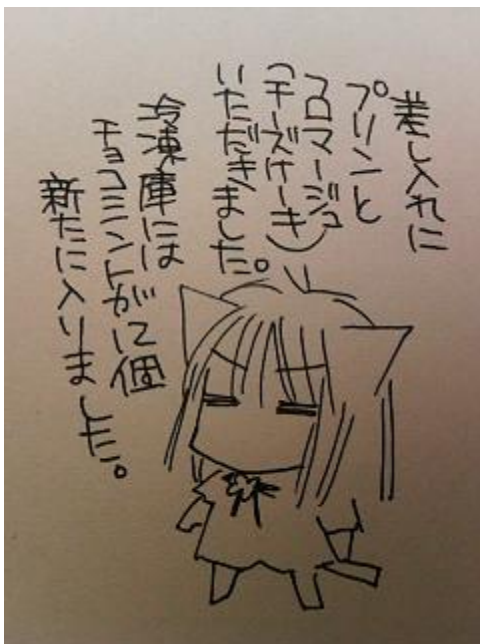 差し入れに
プリンと
フロマージュ
(チーズけーき)
いただきました。
冷凍庫には
チョコミントが12個
新たに入りました。